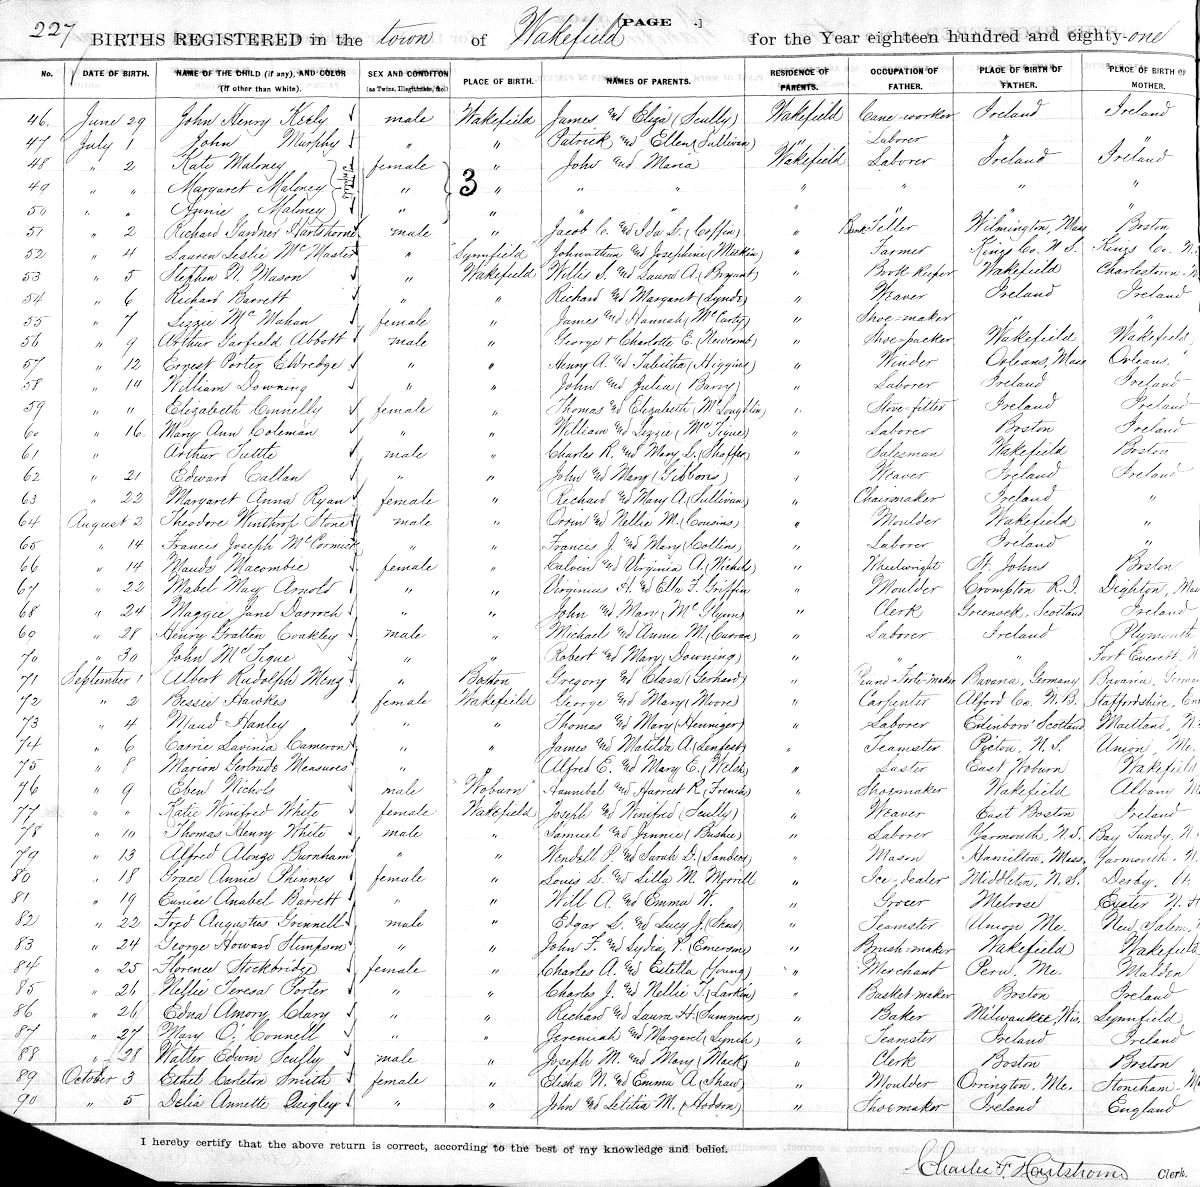 227 [PAGE .]
BIRTHS REGISTERED in the town of Wakefield for the Year eighteen hundred and eighty-one
No. DATE OF BIRTH. NAME OF THE CHILD (if any), AND COLOR (if other than White). SEX AND CONDITON (as Twins, Illegitimate, &c.) PLACE OF BIRTH. NAMES OF PARENTS. RESIDENCE OF PARENTS. OCCUPATION OF FATHER. PLACE OF BIRTH OF FATHER. PLACE OF BIRTH OF MOTHER.
46. June 29 John Henry Keely male Wakefield James and Eliza (Scully) Wakefield Cane-worker Ireland Ireland
47 July 1 John Murphy " " Patrick and Ellen (Sullivan) " Laborer " "
48 " 2 Kate Maloney female " John and Maria Wakefield Laborer Ireland Ireland
49 " " Margaret Maloney " 3 " " " " " " "
50 " " Annie Maloney " " " " " " "
51 " 2 Richard Gardner Hartshorne male " Jacob C. and Ida L. (Coffin) " Bank Teller Wilmington, Mass Boston
52 " 4 Lauren Leslie McMaster " Lynnfield Johnathan and Josephine (Meekin) " Farmer Kings Co. N.S. Kings Co. N.
53 " 5 Stephen N. Mason " Wakefield Willis S. and Laura A. (Bryant) " Book keeper Wakefield Charlestown.
54 " 6 Richard Barrett " " Richard and Margaret (Lynde) " Weaver Ireland Ireland
55 " 7 Lizzie McMahan female " James and Hannah (McCarty) " Shoe-maker " "
56 " 9 Arthur Garfield Abbott male " George & Charlotte E. (Newcomb) " Shoe-packer Wakefield Wakefield
57 " 12 Ernest Porter Eldredge " " Henry A. and Tabitha (Higgins) " Winder Orleans, Mass Orleans. "
58 " 14 William Downing " " John and Julia (Barry) " Laborer Ireland Ireland
59 " " Elizabeth Connelly female " Thomas and Elizabeth (McLoughlin) " Stove-fitter Ireland Ireland
60 " 16 Mary Ann Coleman " " William and Lizzie (McTigue) " Laborer Boston Ireland
61 " Arthur Tuttle male " Charles R. and Mary L. (Shaffer) " Salesman Wakefield Boston
62 " 21 Edward Callan " " John and Mary (Gibbons) " Weaver Ireland Ireland
63 " 22 Margaret Anna Ryan female " Richard and Mary A. (Sullivan) " Chairmaker Ireland "
64 August 2 Theodore Winthrop Stone male " Orrin and Nellie M. (Cousins) " Moulder Wakefield "
65 " 14 Francis Joseph McCormick " " Francis J. and Mary (Collins) " Laborer Ireland "
66 " 14 Maude Macombie female " Calvin and Virginia A. (Nichols) " Wheelwright St. Johns Boston
67 " 22 Mabel May Arnold " " Virginius H. and Ella F. Griffin " Moulder Crompton R.I. Dighton, Mass
68 " 24 Maggie Jane Darroch " " John and Mary (McGlynn) " Clerk Greenock, Scotland Ireland
69 " 28 Henry Gratten Coakley male " Michael and Annie M. (Curran) " Laborer Ireland Plymouth
70 " 30 John McTigue " " Robert and Mary (Downing) " " " Fort Everett,
71 September 1 Albert Rudolph Menz " Boston Gregory and Clara (Gerhard) " Piano Forte-maker Bavaria, Germany Bavaria, Germa
72 " 2 Bessie Hawkes female Wakefield George and Mary (Moore) " Carpenter Alford Co. N.B. Staffordshire, En
73 " 4 Maud Hanley " " Thomas and Mary (Henniger) " Laborer Edinboro' Scotland Maitland, N.
74 " 6 Carrie Lavinia Cameron " " James and Matilda A. (Lenfest) " Teamster Pictou, N.S. Union, Me.
75 " 8 Marion Gertrude Measures " " Alfred E. and Mary E. (Welsh) " Laster East Woburn Wakefield
46 " 9 Eben Nichols male Woburn Hannibal and Harriet R. (French) " Shoemaker Wakefield Albany
77 " " Katie Winifred White female Wakefield Joseph and Winifred (Scully) " Weaver East Boston Ireland
78 " 10 Thomas Henry White male " Samuel and Jennie (Bushie) " Laborer Yarmouth N.S. Bay Fundy, N.
79 " 13 Alfred Alonzo Burnham " " Wendell P. and Sarah D. (Sanders) " Mason Hamilton, Mass. Yarmouth. N
80 " 18 Grace Annie Phinney female " Louis S. and Lilla M. Morrill " Ice-dealer Middleton, N.S. Derby, Vt.
81 " 19 Eunice Anabel Barrett " " Will A. and Emma W. " Grocer Melrose Exeter N.H
82 " 22 Fred Augustus Grinnell male " Edgar L. and Lucy J. (Shaw) " Teamster Union Me. New Salem,
83 " 24 George Howard Stimpson " " John F. and Lydia P. (Emerson) " Brush-maker Wakefield Wakefield
84 " 25 Florence Stockbridge female " Charles A. and Estella (Young) " Merchant Peru. Me. Malden
85 " 26 Nellie Teresa Porter " " Charles J. and Nellie T. (Larkin) " Basket-maker Boston Ireland
86 " 26 Edna Amory Clary " " Richard and Laura H. (Summers) " Baker Milwaukee, Wis. Lynnfield
87 " 27 Mary O'Connell " " Jeremiah and Margaret (Lynch) " Teamster Ireland Ireland
88 " 28 Walter Edwin Scully male " Joseph M. and Mary (Mack) " Clerk Boston Boston
89 October 3 Ethel Carleton Smith female " Elisha N. and Emma A. (Shaw) " Moulder Orrington, Me. Stoneham, M
90 " 5 Delia Annette Quigley " " John and Letitia M. (Hodson) " Shoemaker Ireland England
I hereby certify that the above return is correct, according to the best of my knowledge and belief.
Charles F. Hartshorne Clerk.